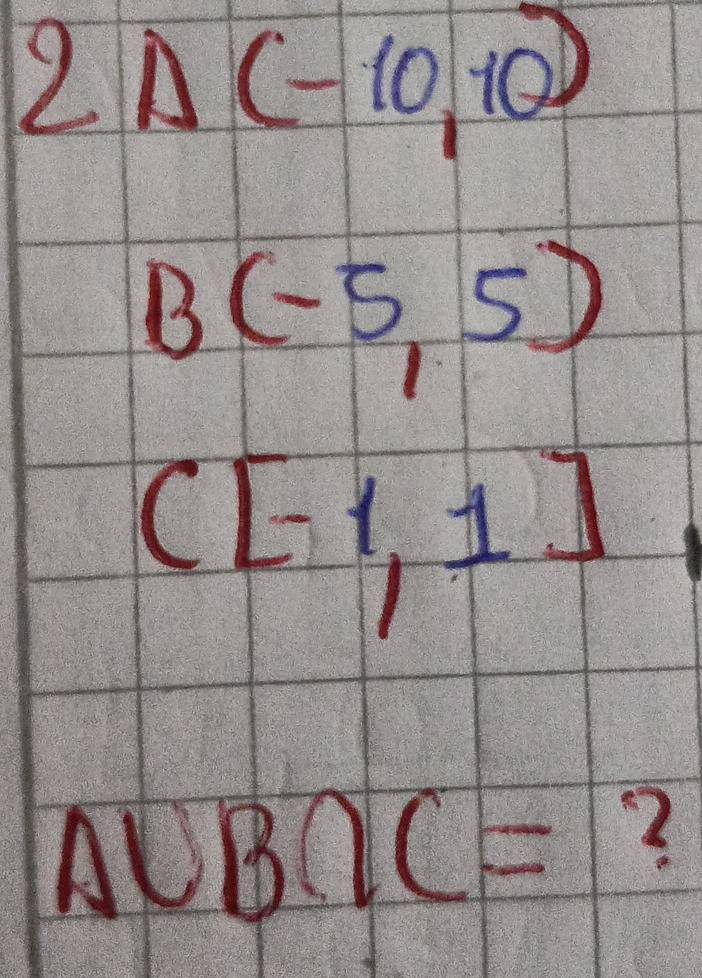 2 A (-10, 10)
B (-5, 5)
C [-1, 1]
A∪B∩C = ?